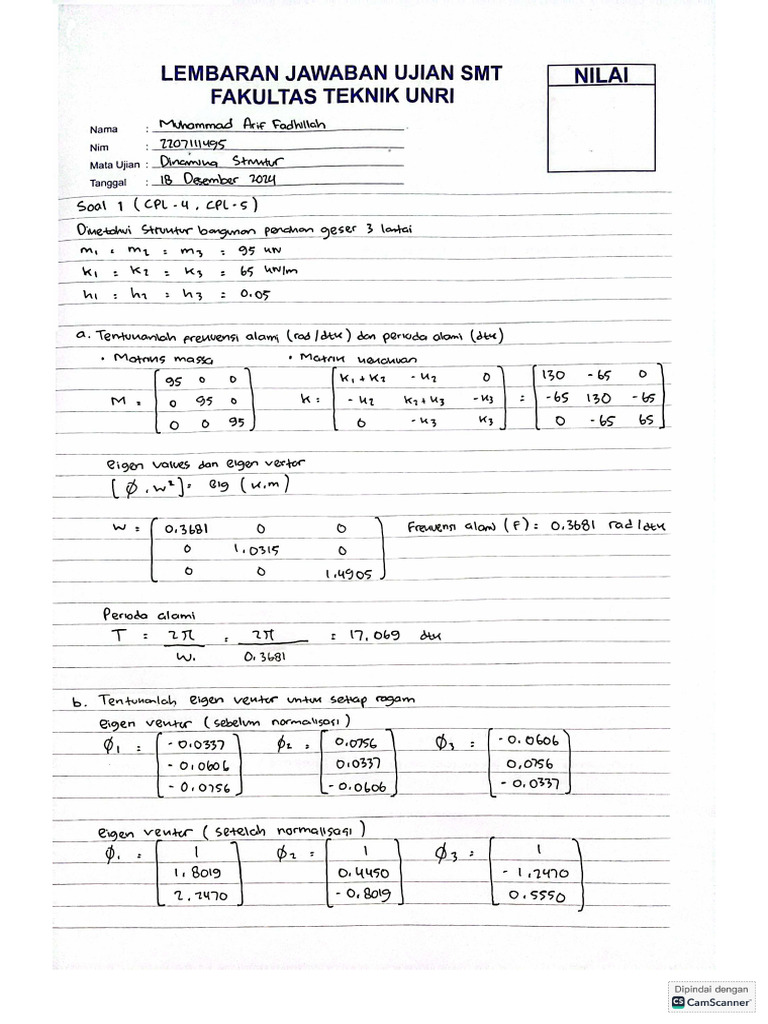 LEMBARAN JAWABAN UJIAN SMT
FAKULTAS TEKNIK UNRI
NILAI
Nama : Muhammad Arif Fadhillah
Nim : 2207111495
Mata Ujian : Dinamika Struktur
Tanggal : 18 Desember 2024
Soal 1 (CPL-4, CPL-5)
Diketahui Struktur bangunan penahan geser 3 lantai
m1 = m2 = m3 = 95 kN
k1 = k2 = k3 = 65 kN/m
h1 = h2 = h3 = 0.05
a. Tentukanlah frekuensi alami (rad/dtk) dan perioda alami (dtk)
• Matriks massa • Matrik kekakuan
M = [95 0 0 K = [k1+k2 -k2 0 = [130 -65 0
0 95 0 -k2 k2+k3 -k3 -65 130 -65
0 0 95] 0 -k3 k3] 0 -65 65]
eigen values dan eigen vektor
[Ø, w²] = eig (k,m)
W = [0.3681 0 0 Frekuensi alami (F) = 0.3681 rad/dtk
0 1.0315 0
0 0 1.4905]
Perioda alami
T = 2π/W. = 2π/0.3681 = 17.069 dtk
b. Tentukanlah eigen vektor untuk setiap ragam
eigen vektor (sebelum normalisasi)
Ø1 = [-0.0337 Ø2 = [0.0756 Ø3 = [-0.0606
-0.0606 0.0337 0.0756
-0.0756] -0.0606] -0.0337]
eigen vektor (setelah normalisasi)
Ø1 = [1 Ø2 = [1 Ø3 = [1
1.8019 0.4450 -1.2470
2.2470] -0.8019] 0.5550]
Dipindai dengan
CS CamScanner